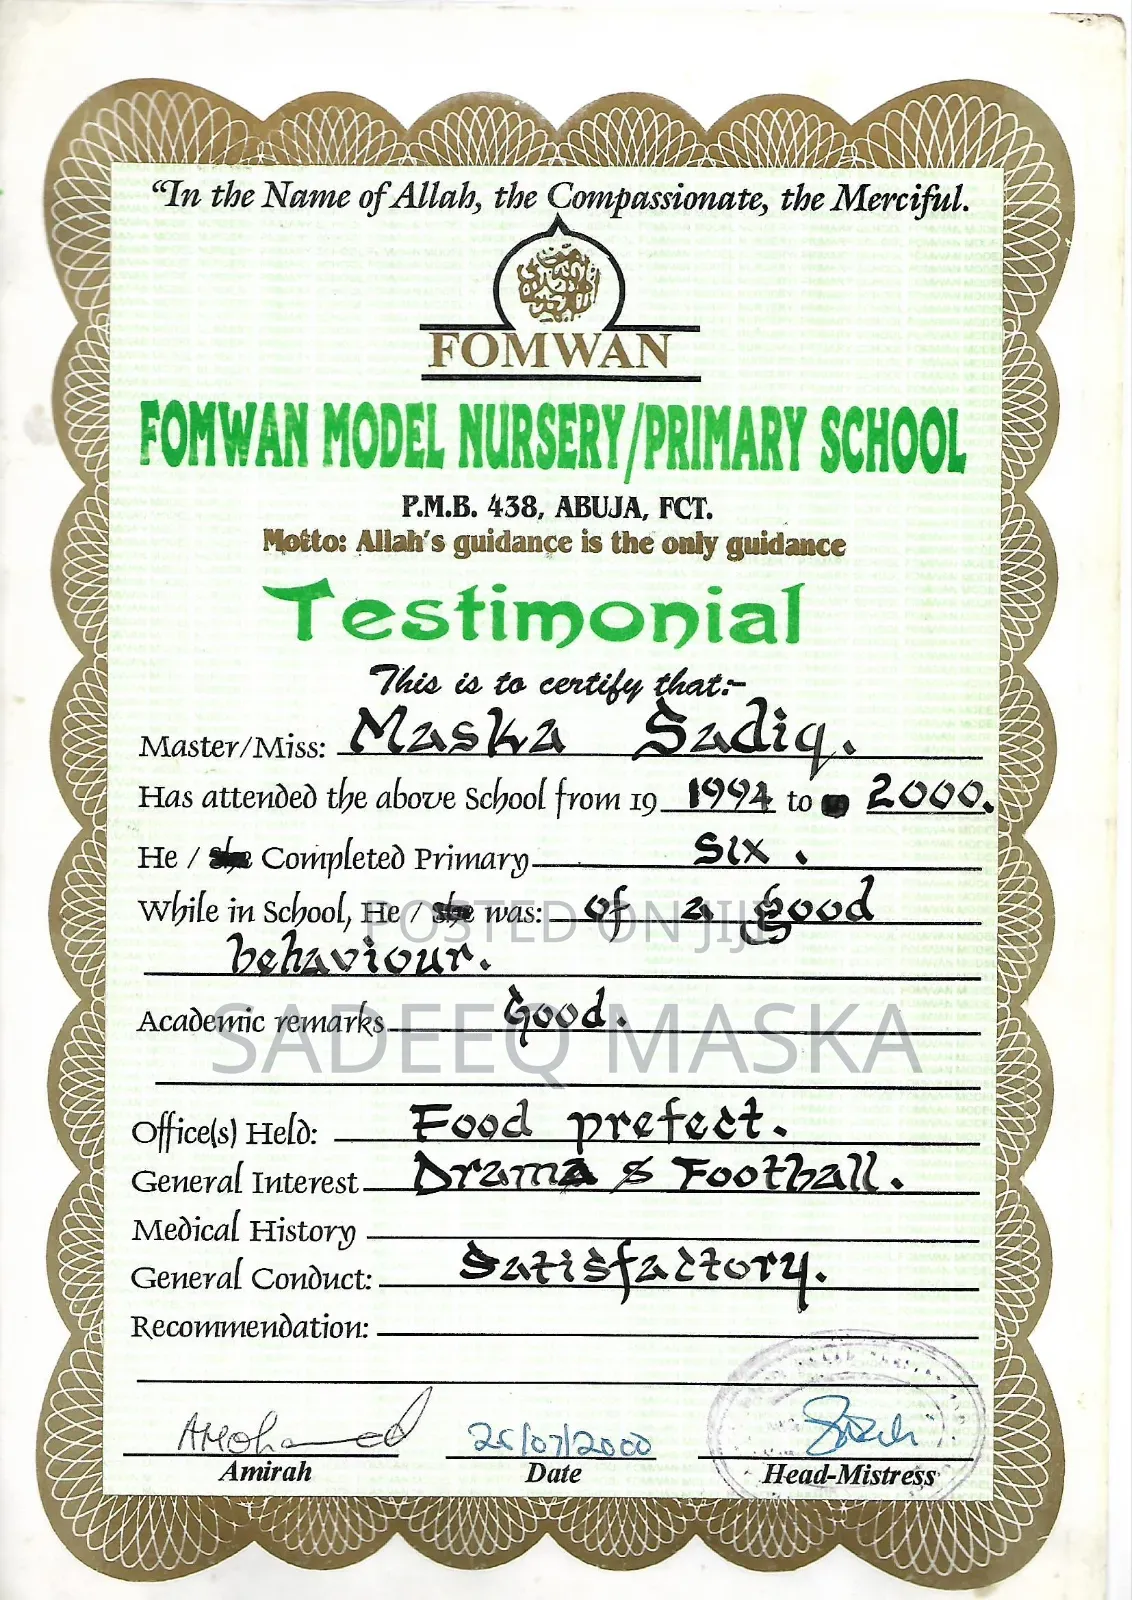 “In the Name of Allah, the Compassionate, the Merciful.
FOMWAN
FOMWAN MODEL NURSERY/PRIMARY SCHOOL
P.M.B. 438, ABUJA, FCT.
Motto: Allah's guidance is the only guidance
Testimonial
This is to certify that:-
Master/Miss: Maska Sadiq.
Has attended the above School from 19 1994 to 2000.
He / She Completed Primary Six.
While in School, He / she was: of a good
behaviour.
POSTED ON JIJI
Academic remarks Good.
SADEEQ MASKA
Office(s) Held: Food prefect.
General Interest Drama & Football.
Medical History
General Conduct: Satisfactory.
Recommendation:
AMohamed /07/2000
Amirah Date Head-Mistress